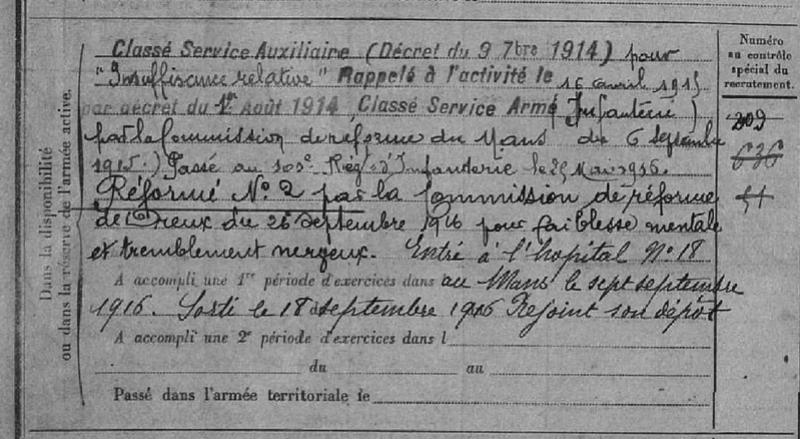 Dans la disponibilité
ou dans la réserve de l'armée active.
Classé Service Auxiliaire (Décret du 9 7bre 1914) pour
"Insuffisance relative" Rappelé à l'activité le 16 avril 1915
par décret du 1er Août 1914 Classé Service Armé (Infanterie)
par la Commission de réforme du Mans du 6 septembre
1915.) Passé au Rég. d'Infanterie le 25 Mai 1916.
Réformé N° 2 par la Commission de réforme
de Dreux du 26 septembre 1916 pour faiblesse mentale
et tremblement nerveux. Entré à l'hopital N° 18
A accompli une 1re période d'exercices dans au Mans le sept septembre
1916. Sorti le 18 septembre 1916 Rejoint son dépôt
A accompli une 2e période d'exercices dans l
du au
Passé dans l'armée territoriale le
Numéro
au contrôle
spécial du
recrutement.
209
636
51